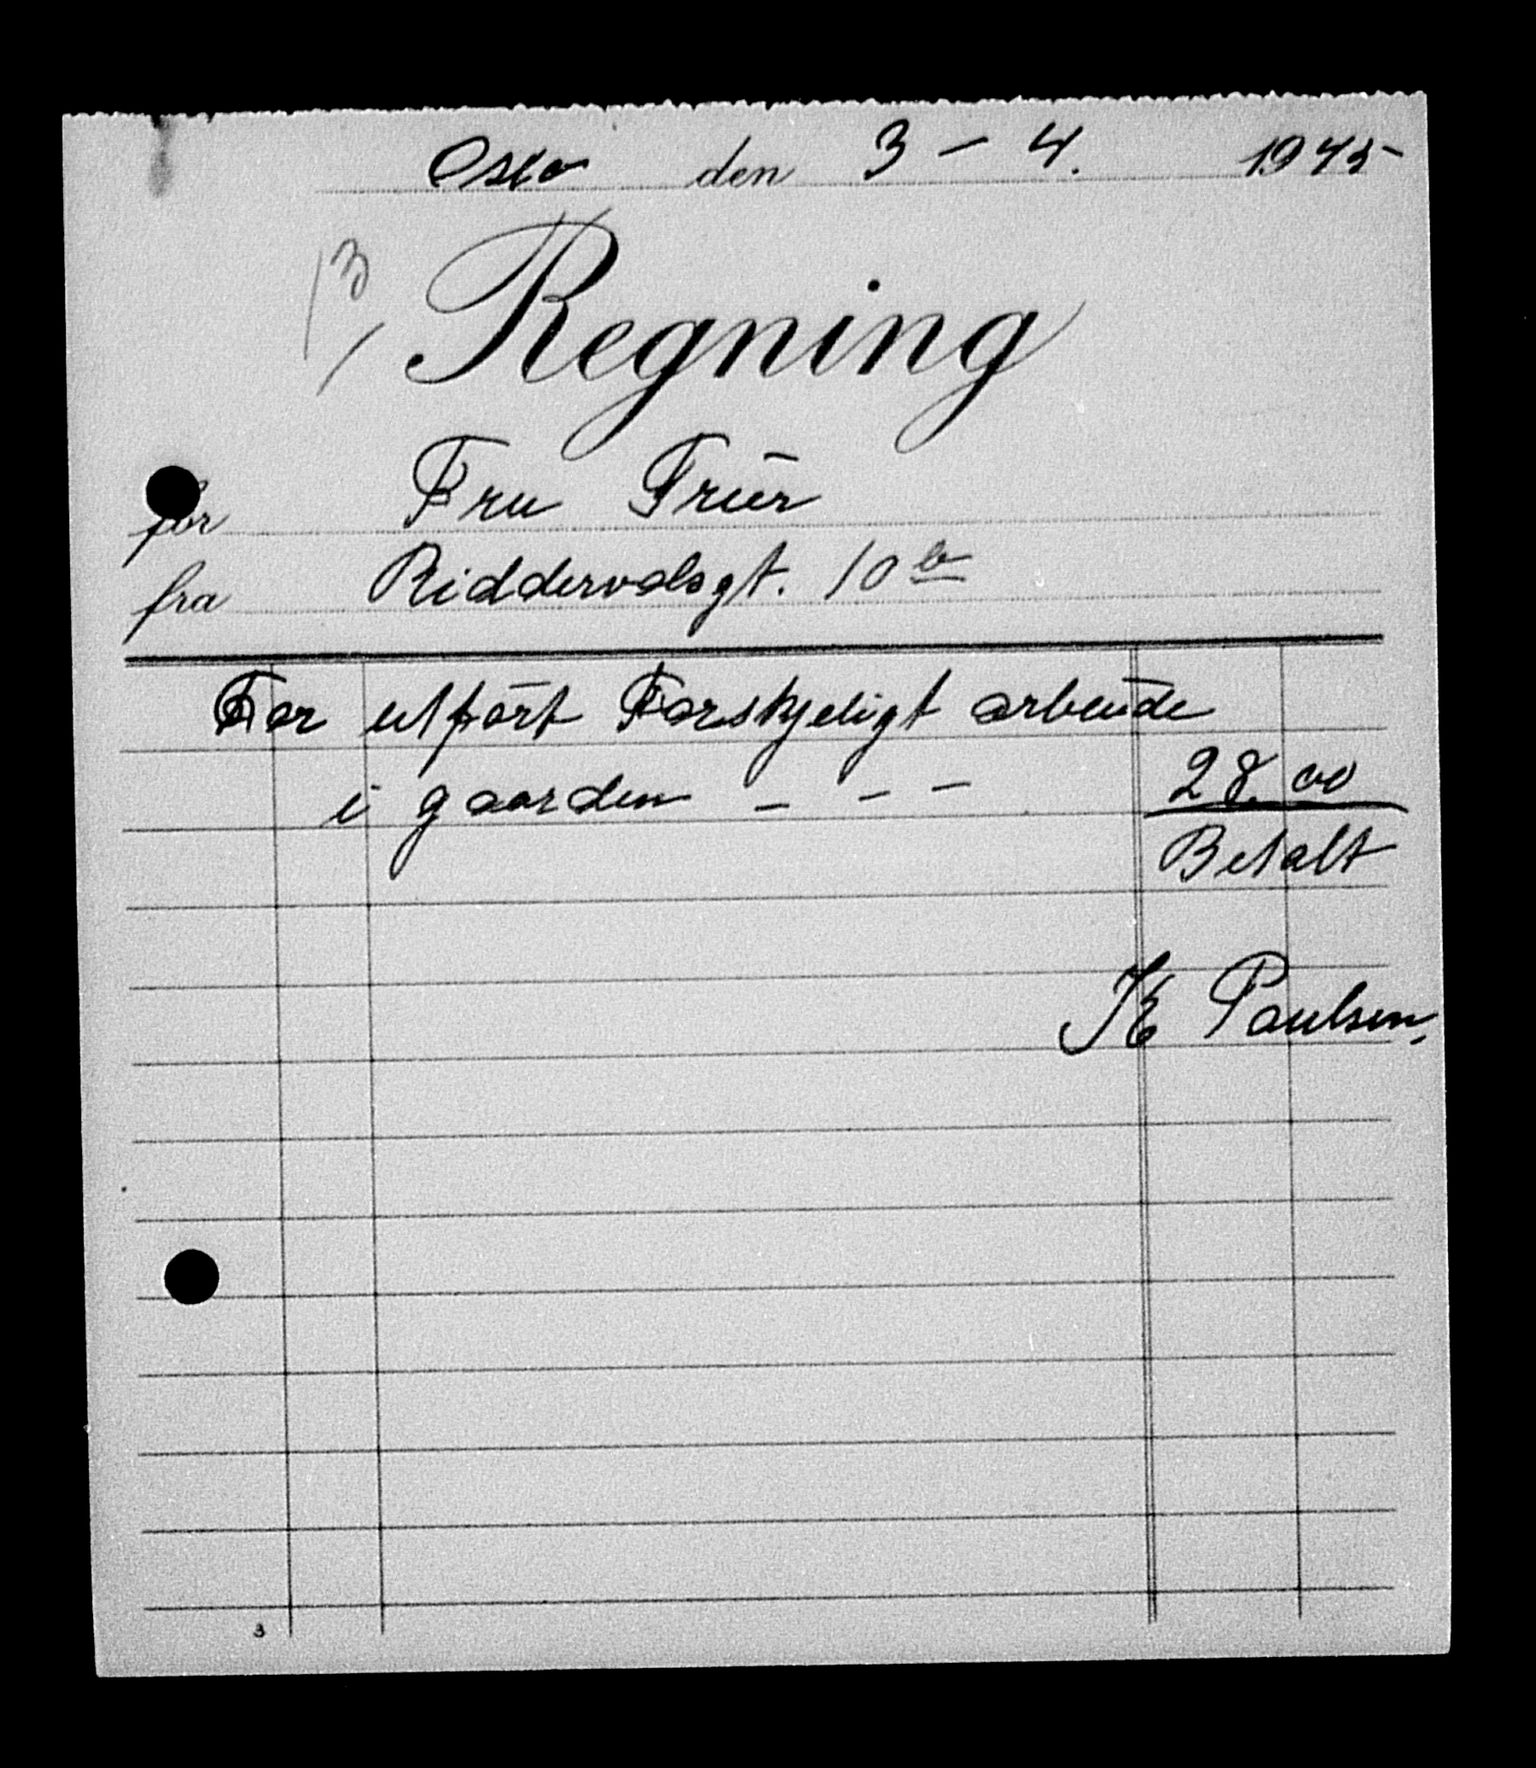 Oslo den 3 - 4. 1945
13/
Regning
for Fru Friis
fra Riddervoldsgt. 10 b
For utført Forskjeligt arbeide
i gaarden - - - 28.00
Betalt
K Paulsen,
3